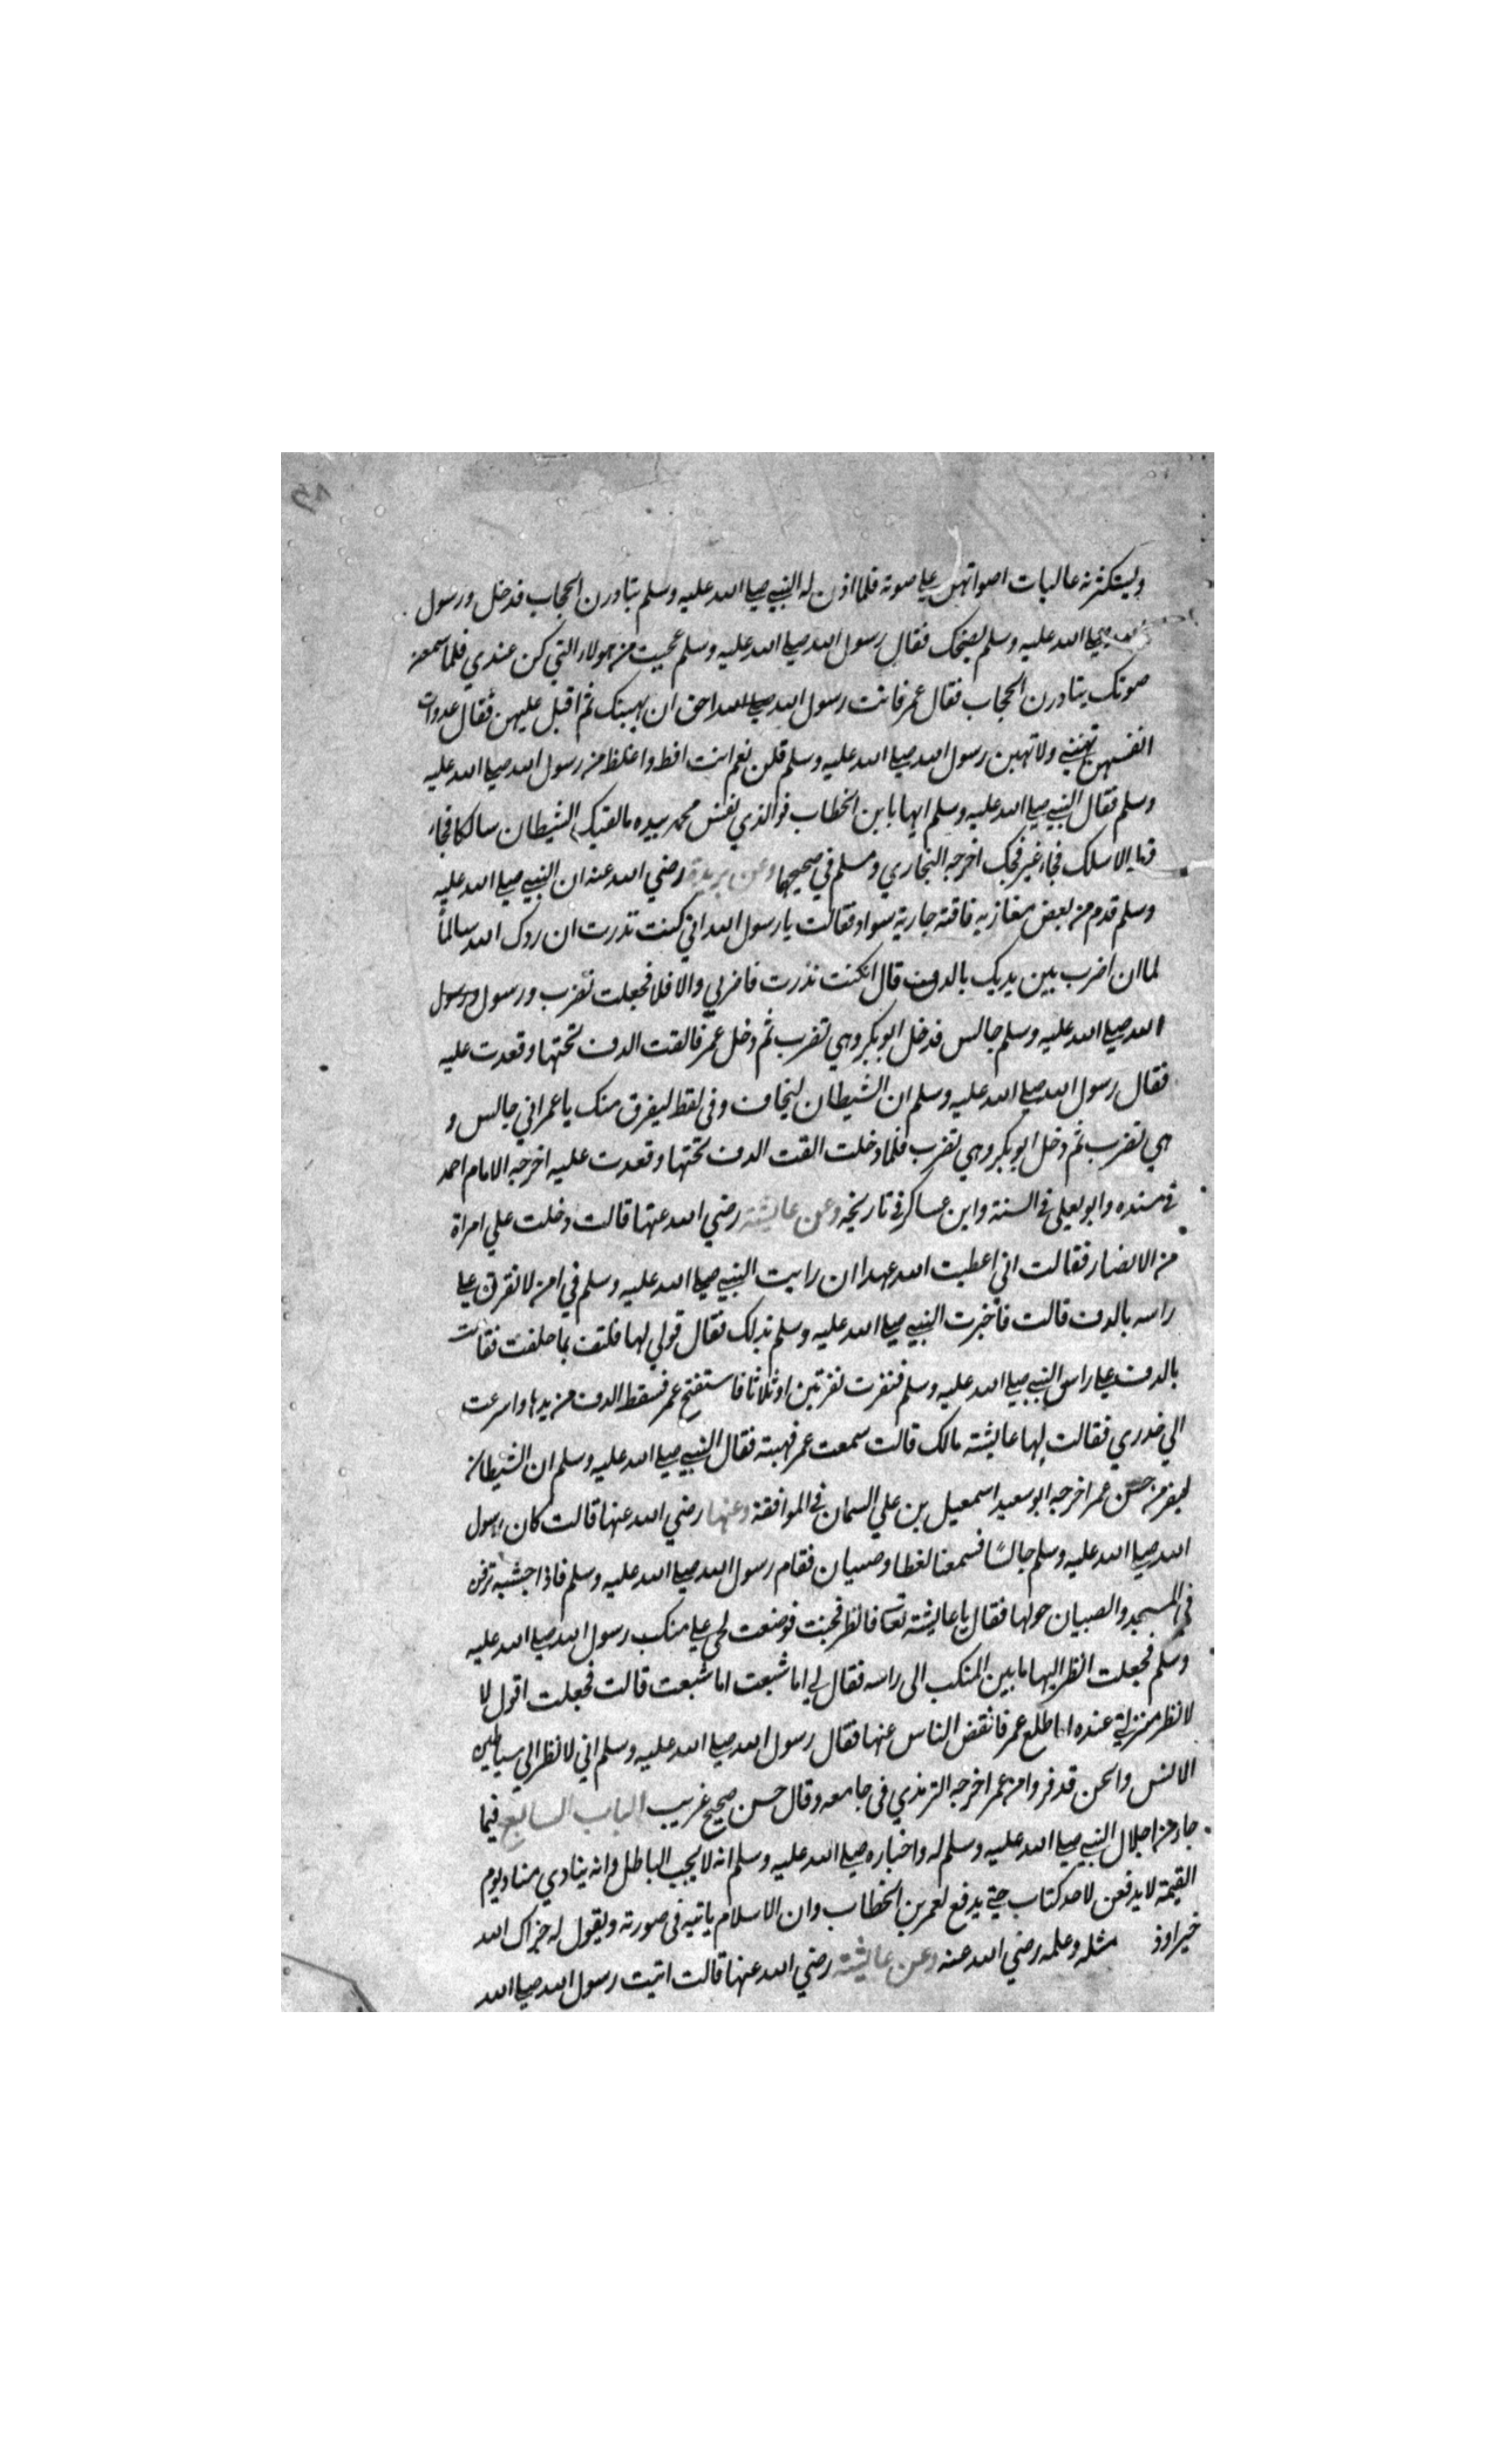 ويستكثرنه عاليات اصواتهن علي صوته فلما اذن له النبي صلي الله عليه وسلم تبادرن الحجاب فدخل ورسول
صلي الله عليه وسلم يضحك فقال رسول الله صلي الله عليه وسلم عجبت من هولاء التي كن عندي فلما سمعن
صوتك يتادرن الحجاب فقال عمر فانت رسول الله صلي الله احق ان يهبنك ثم اقبل عليهن فقال عدوات
انفسهن تهبنني ولا تهبن رسول الله صلي الله عليه وسلم قلن نعم انت افظ واغلظ من رسول الله صلي الله عليه
وسلم فقال النبي صلي الله عليه وسلم ايها يا بن الخطاب فوالذي نفس محمد بيده ما لقيك الشيطان سالكا فجاء
قط الا سلك فجاء غير فجك اخرجه البخاري ومسلم في صحيحها وعن بريدة رضي الله عنه ان النبي صلي الله عليه
وسلم قدم من بعض مغازيه فاقته جارية سوداء فقالت يا رسول الله اني كنت نذرت ان ردك الله سالماً
لما ان اضرب بين يديك بالدف قال انكنت نذرت فاضربي والا فلا فجعلت تضرب ورسول ورسول
الله صلي الله عليه وسلم جالس فدخل ابوبكر وهي تضرب ثم دخل عمر فالقت الدف تحتها وقعدت عليه
فقال رسول الله صلي الله عليه وسلم ان الشيطان ليخاف وفي لفظ ليفرق منك يا عمر اني جالس و
هي تضرب ثم دخل ابوبكر وهي تضرب فلما دخلت القت الدف تحتها وقعدت عليه اخرجه الامام احمد
في مسنده وابو يعلى في السنة وابن عساكر في تاريخه وعن عايشة رضي الله عنها قالت دخلت علي امراة
من الانصار فقالت اني اعطيت الله عهدا ان رايت النبي صلي الله عليه وسلم في امن لانقرن علي
راسه بالدف قالت فاخبرت النبي صلي الله عليه وسلم بذلك فقال قولي لها فلتف بما حلفت فقامت
بالدف علي راس النبي صلي الله عليه وسلم فنقرت نقرتين او ثلاثا فاستفتح عمر فسقط الدف من يدها واسرعت
الي خدري فقالت لها عايشة مالك قالت سمعت عمر فهبته فقال النبي صلي الله عليه وسلم ان الشيطان
ليفر من حس عمر اخرجه ابو سعيد اسمعيل بن علي السمان في الموافقة وعنها رضي الله عنها قالت كان رسول
الله صلي الله عليه وسلم جالسًا فسمعنا لغطا وصبيان فقام رسول الله صلي الله عليه وسلم فاذا حبشية تزفن
في المسجد والصبيان حولها فقال يا عايشة تعا فانظر فجئت فوضعت لحي علي منكب رسول الله صلي الله عليه
وسلم فجعلت انظر اليها ما بين المنكب الى راسه فقال لي اما شبعت اما شبعت قالت فجعلت اقول لا
لانظر منزلتي عنده اطلع عمر فانفض الناس عنها فقال رسول الله صلي الله عليه وسلم اني لانظر الي شياطين
الانس والجن قد فروا من عمر اخرجه الترمذي في جامعه وقال حسن صحيح غريب الباب السابع فيما
جاء من اجلال النبي صلي الله عليه وسلم له واخباره صلي الله عليه وسلم انه لا يحب الباطل وانه ينادي مناد يوم
القيمة لا يدفعن لاحد كتاب حتي يدفع لعمر بن الخطاب وان الاسلام ياتيه في صورته ويقول له جزاك الله
خيرا وذ مثله وعلمه رضي الله عنه وعن عايشة رضي الله عنها قالت اتيت رسول الله صلي الله